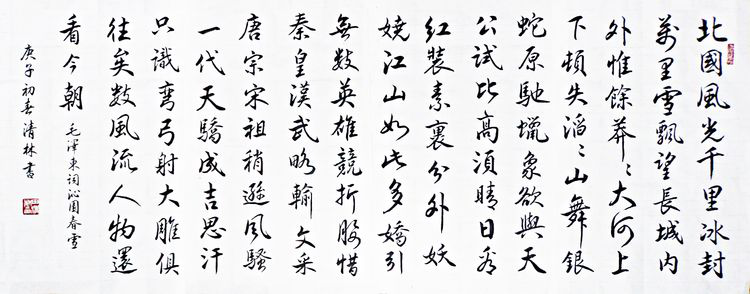 北國風光千里冰封
萬里雪飄望長城內
外惟餘莽〻大河上
下頓失滔〻山舞銀
蛇原馳蠟象欲與天
公試比高須晴日看
紅裝素裹分外妖
嬈江山如此多嬌引
無數英雄競折腰惜
秦皇漢武略輸文采
唐宗宋祖稍遜風騷
一代天驕成吉思汗
只識彎弓射大雕俱
往矣數風流人物還
看今朝
毛澤東詞沁園春雪
庚子初春清林書